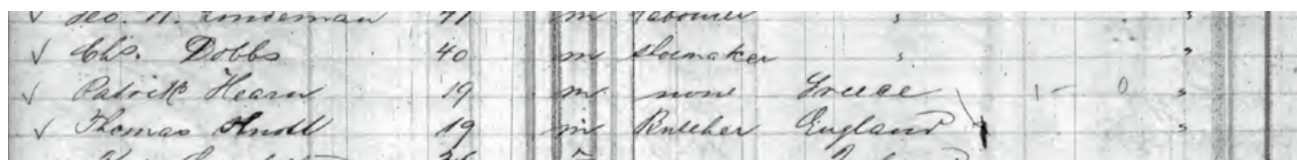 Geo. W. Lindeman 41 m Labourer "
✓ Chs. Dobbs 40 m Shoemaker " "
✓ Patrick Hearn 19 m none Greece 1 - 0 "
✓ Thomas Knott 19 m Butcher England "